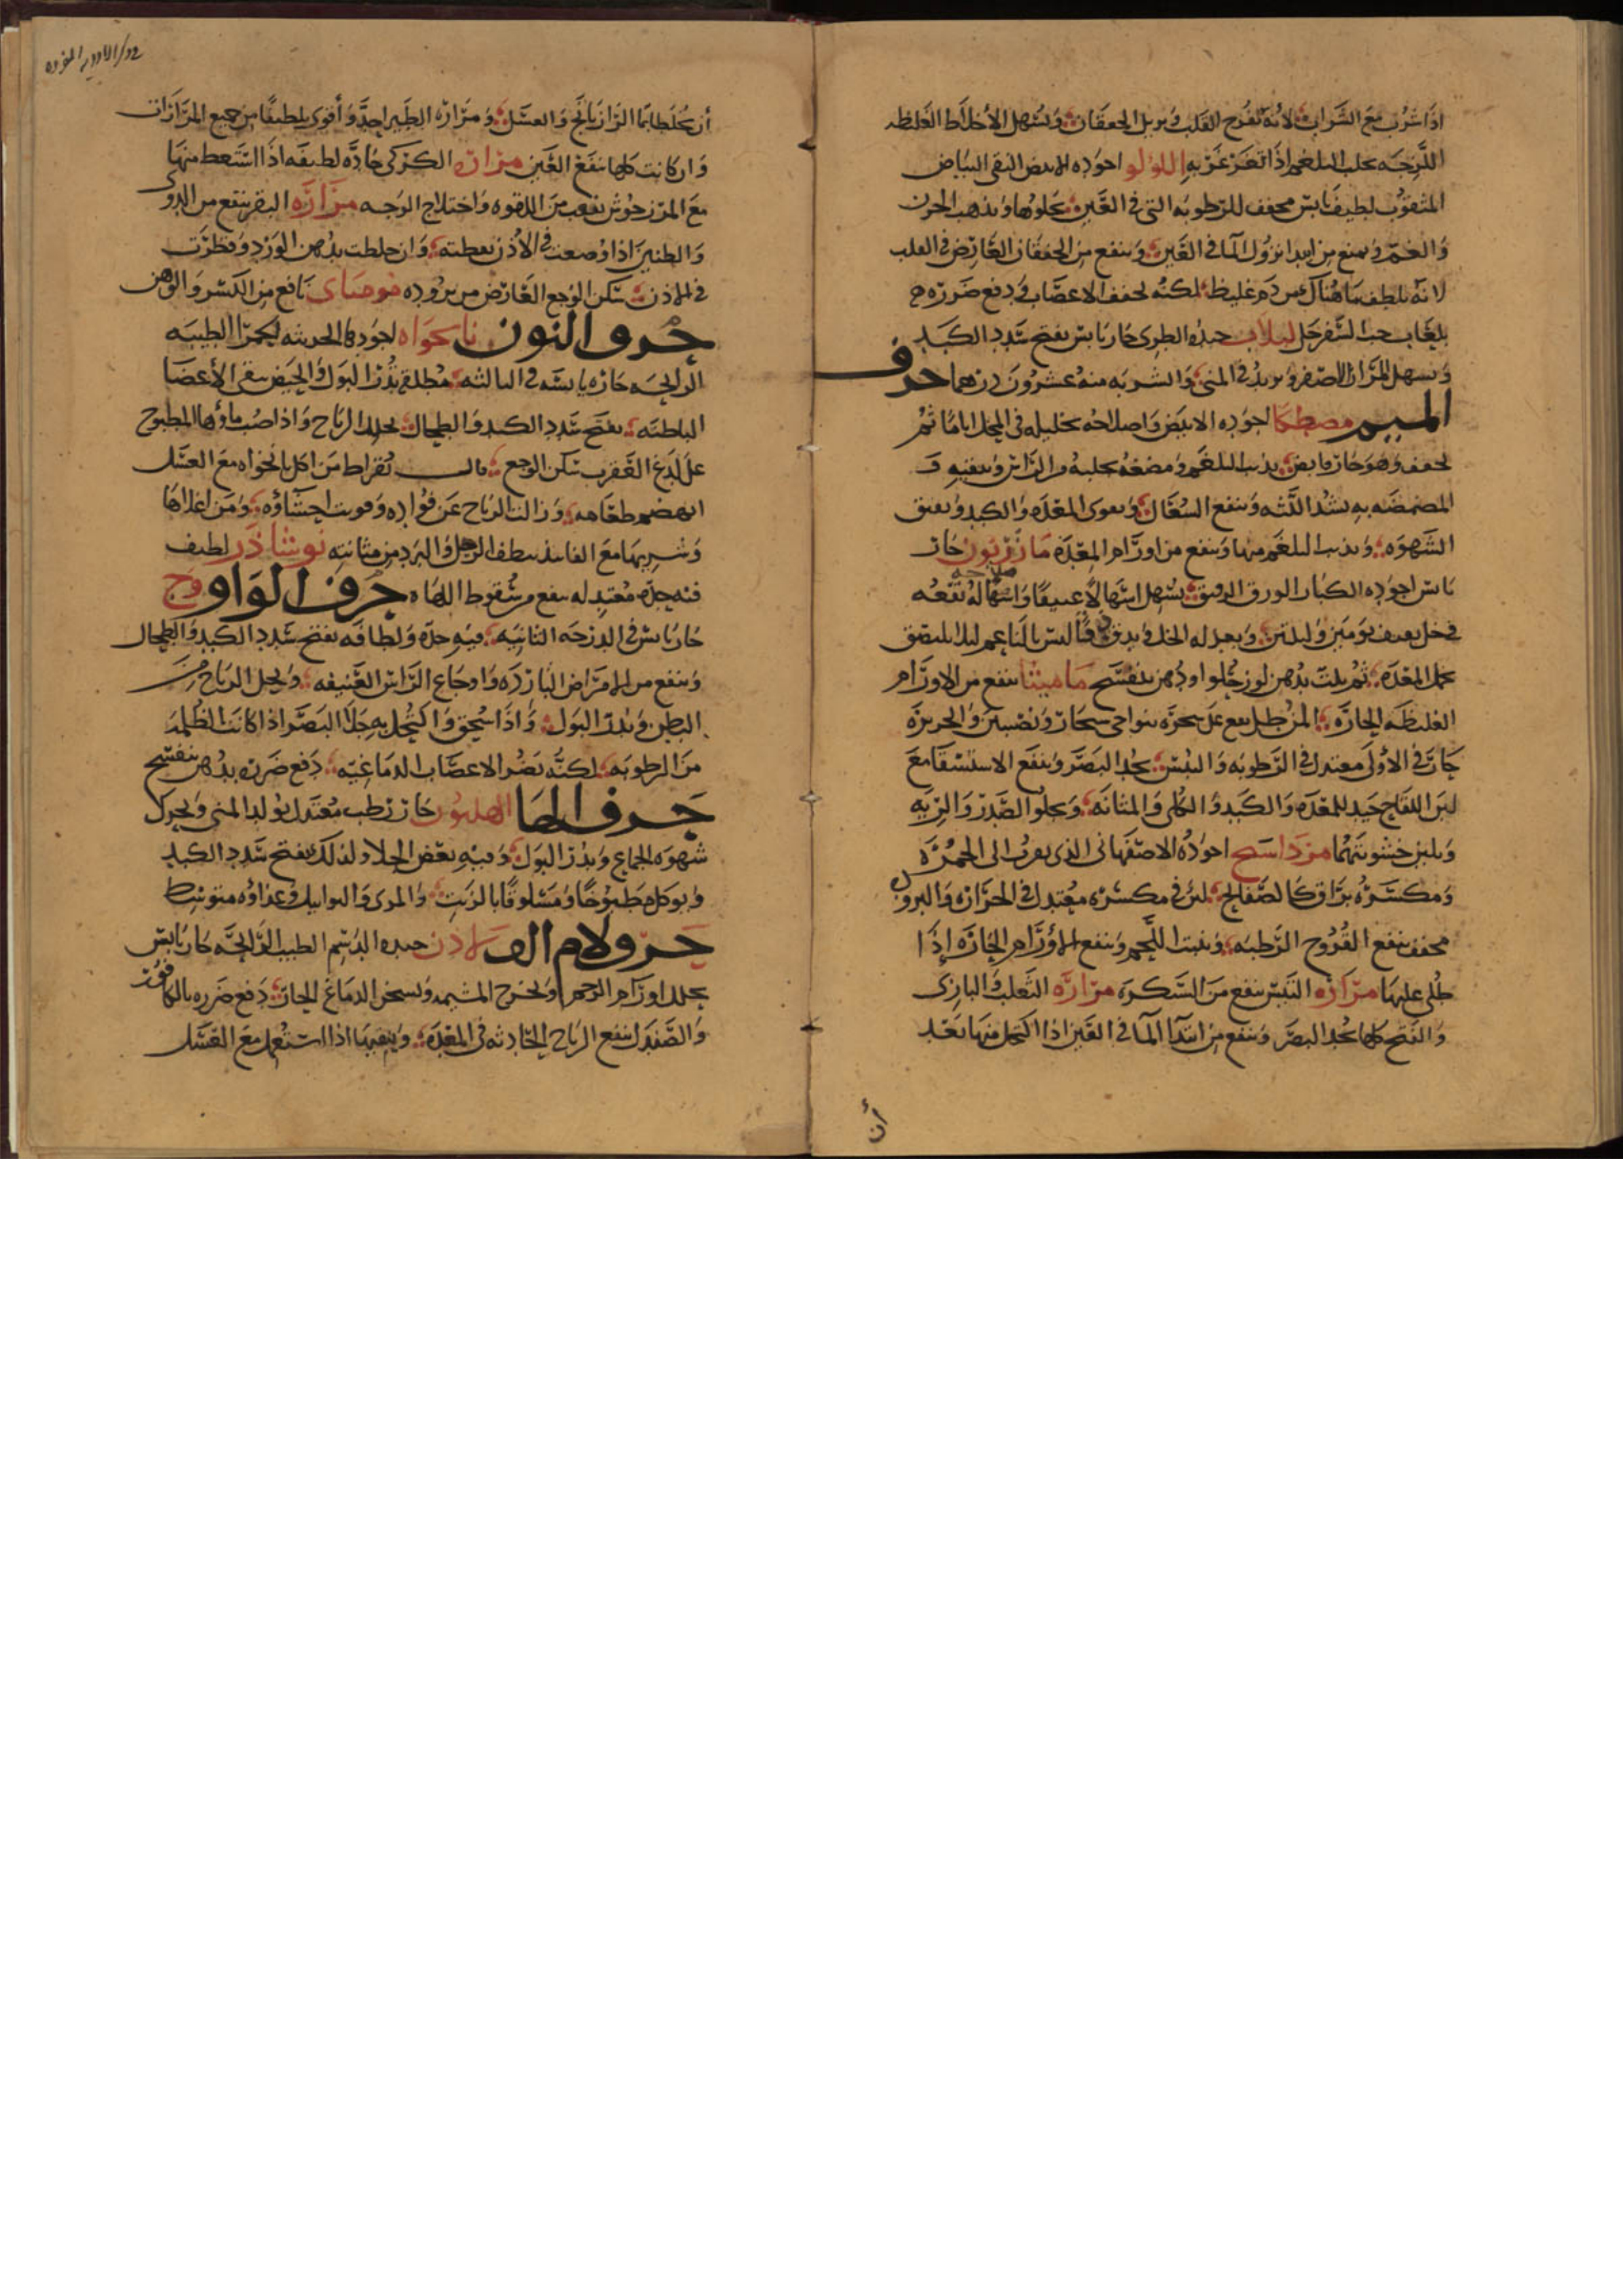 اذا شرب مع الشراب لانه يفرح القلب ويزيل الخفقان ويسهل الأخلاط الغليظه
اللزجه يجلب البلغم اذا تغرغر به اللولو اجوده الابيض النقى البياض
المثقوب لطيف يابس مجفف للرطوبه التى فى العين يجلوها ويذهب الحزن
والغم ويمنع من ابتدا نزول الما فى العين وينفع من الخفقان العارض فى القلب
لانه يلطف ما هناك من دم غليظ لكنه يجفف الاعصاب ويدفع ضرره
بلعاب حب السفرجل لبلاب جيده الطرى حار يابس يفتح سدد الكبد
ويسهل المرار الاصفر ويزيد فى المنى والشربه منه عشرون درهما حرف
الميم مصطكا اجوده الابيض واصلاحه تخليله فى الخل اياما ثم
يجفف وهو حار قابض يذيب البلغم ومضغه يجلبه من الراس وينقيه و
المضمضه به يشد اللثه وينفع السعال ويقوى المعده والكبد ويفتق
الشهوه ويذيب البلغم منها وينفع من اورام المعده مازريون حار
يابس اجوده الكبار الورق الرقيق يسهل اسهالا عنيفا واصلاحه نقعه
فى خل يومين وليلتين ويبدل له الخل ويدق دقا ليس بالناعم ليلا يلتصق
بخمل المعده ثم يلت بدهن لوز حلو او دهن بنفسج ماميثا ينفع من الاورام
الغليظه الحاره المن طل يقع على شجره بنواحى سنجار ونصيبين والجزيره
حار فى الأولى معتدل فى الرطوبه واليبس يحد البصر وينفع الاستسقا مع
لبن اللقاح جيد للمعده والكبد والكلى والمثانه ويجلو الصدر والريه
ويلين خشونتهما مرداسنج اجوده الاصفهانى الذى يعرف الى الحمره
ومكسره براق كالصفايح ليس فى مكسره معتدل فى الحراره والبروده
مجفف ينفع القروح الرطبه وينبت اللحم وينفع الاورام الحاره إذا
طلى عليها مراره التيس ينفع من السكره مراره الثعلب والبازى
والقبج كلها يحد البصر وينفع من ابتدا الما فى العين اذا اكتحل منها بعد
أن
أن يخلط بما الرازيانج والعسل ومراره الطير احد وأقوى تلطيفا من جميع المرارات
وان كانت كلها تنفع العين مراره الكركى حاده لطيفه اذا استعط منها
مع المرزنجوش نفعت من اللقوه واختلاج الوجه مراره البقر ينفع من الدوى
والطنين اذا وضعت فى الأذن بقطنه وان خلطت بدهن الورد وقطرت
فى الاذن سكن الوجع العارض من بروده موميائى نافع من الكسر والوهن
حرف النون نانخواه اجودها الحديثه الحمرا الطيبه
الرايحه حاره يابسه فى الثالثه مطلقه تدر البول والحيض تنقى الأعضا
الباطنه يفتح سدد الكبد والطحال يحلل الرياح واذا صب ماؤها المطبوخ
على لدغ العقرب سكن الوجع قال بقراط من اكل نانخواه مع العسل
انهضم طعامه وزالت الرياح عن فواده وقويت احشاؤه ومن اغلاها
وشربها مع الفانيذ ينظف الرمل والبرد من مثانته نوشاذر لطيف
فيه حده معتدله ينفع من سقوط اللهاه حرف الواو وج
حار يابس فى الدرجه الثانيه فيه حده ولطافه يفتح سدد الكبد والطحال
وينفع من الامراض البارده واوجاع الراس العنيفه ويحل الرياح من
البطن ويدر البول واذا سحق واكتحل به جلا البصر اذا كانت الظلمه
من الرطوبه لكنه يضر الاعصاب الدماغيه دفع ضرره بدهن بنفسج
حرف الها الهليون حار رطب معتدل يولد المنى ويحرك
شهوه الجماع ويدر البول وفيه بعض الجلا ولذلك يفتح سدد الكبد
ويوكل مطبوخا ومسلوقا بالزيت والمرى والتوابيل وغذاؤه متوسط
حرف لام الف لاذن جيده الدسم الطيب الرايحه حار يابس
يحلل اورام الرحم ويخرج المشيمه ويسخن الدماغ الحار دفع ضرره بالكافور
والصندل ينفع الرياح الحادثه فى المعده وينقيها اذا استعمل مع العسل